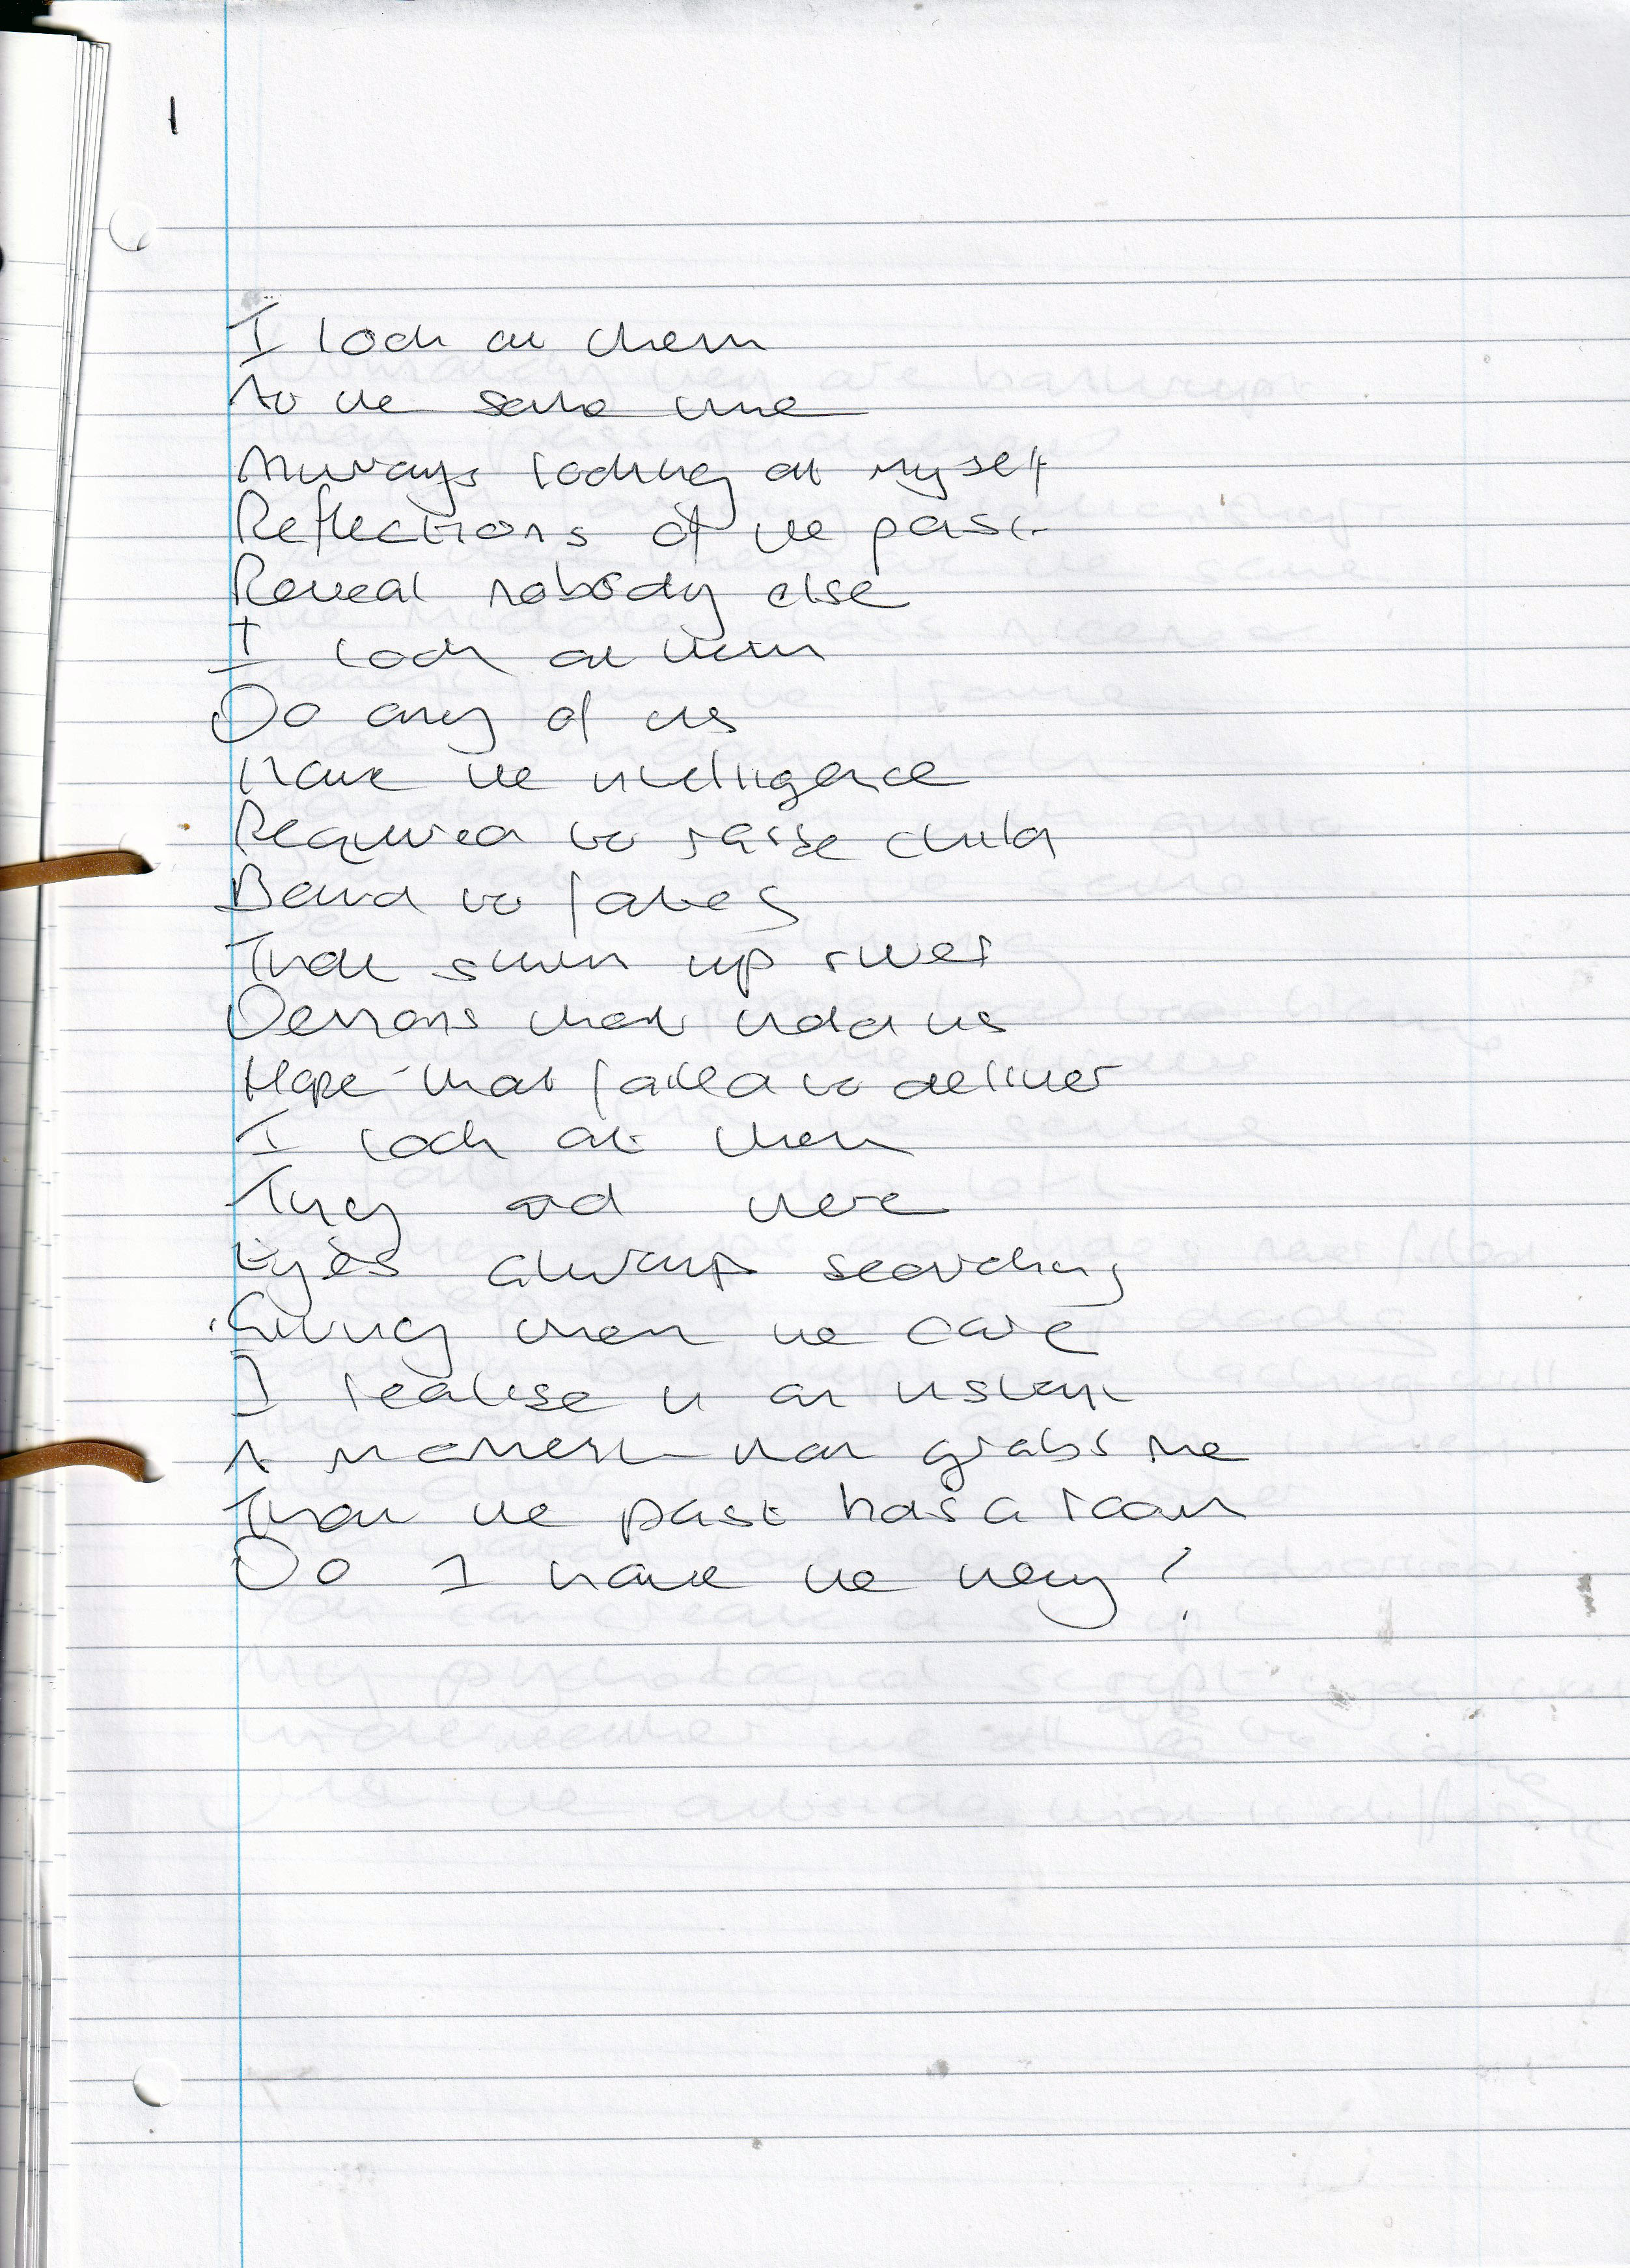 1
I look at them
At the same time
Always looking at myself
Reflections of the past
Reveal nobody else
I look at them
Do any of us
Have the intelligence
Required to raise child
Bound to fates
That swim up river
Demons that hold us
Hope that failed to deliver
I look at them
They are there
Eyes always searching
Giving them the care
I realise in an instant
A moment that grabs me
That the past has a room
Do I have the key?